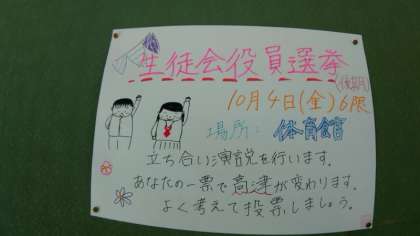 生徒会役員選挙
(後期)
10月4日(金)6限
場所: 体育館
立ち合い演説を行います。
あなたの一票で高津が変わります。
よく考えて投票しましょう。